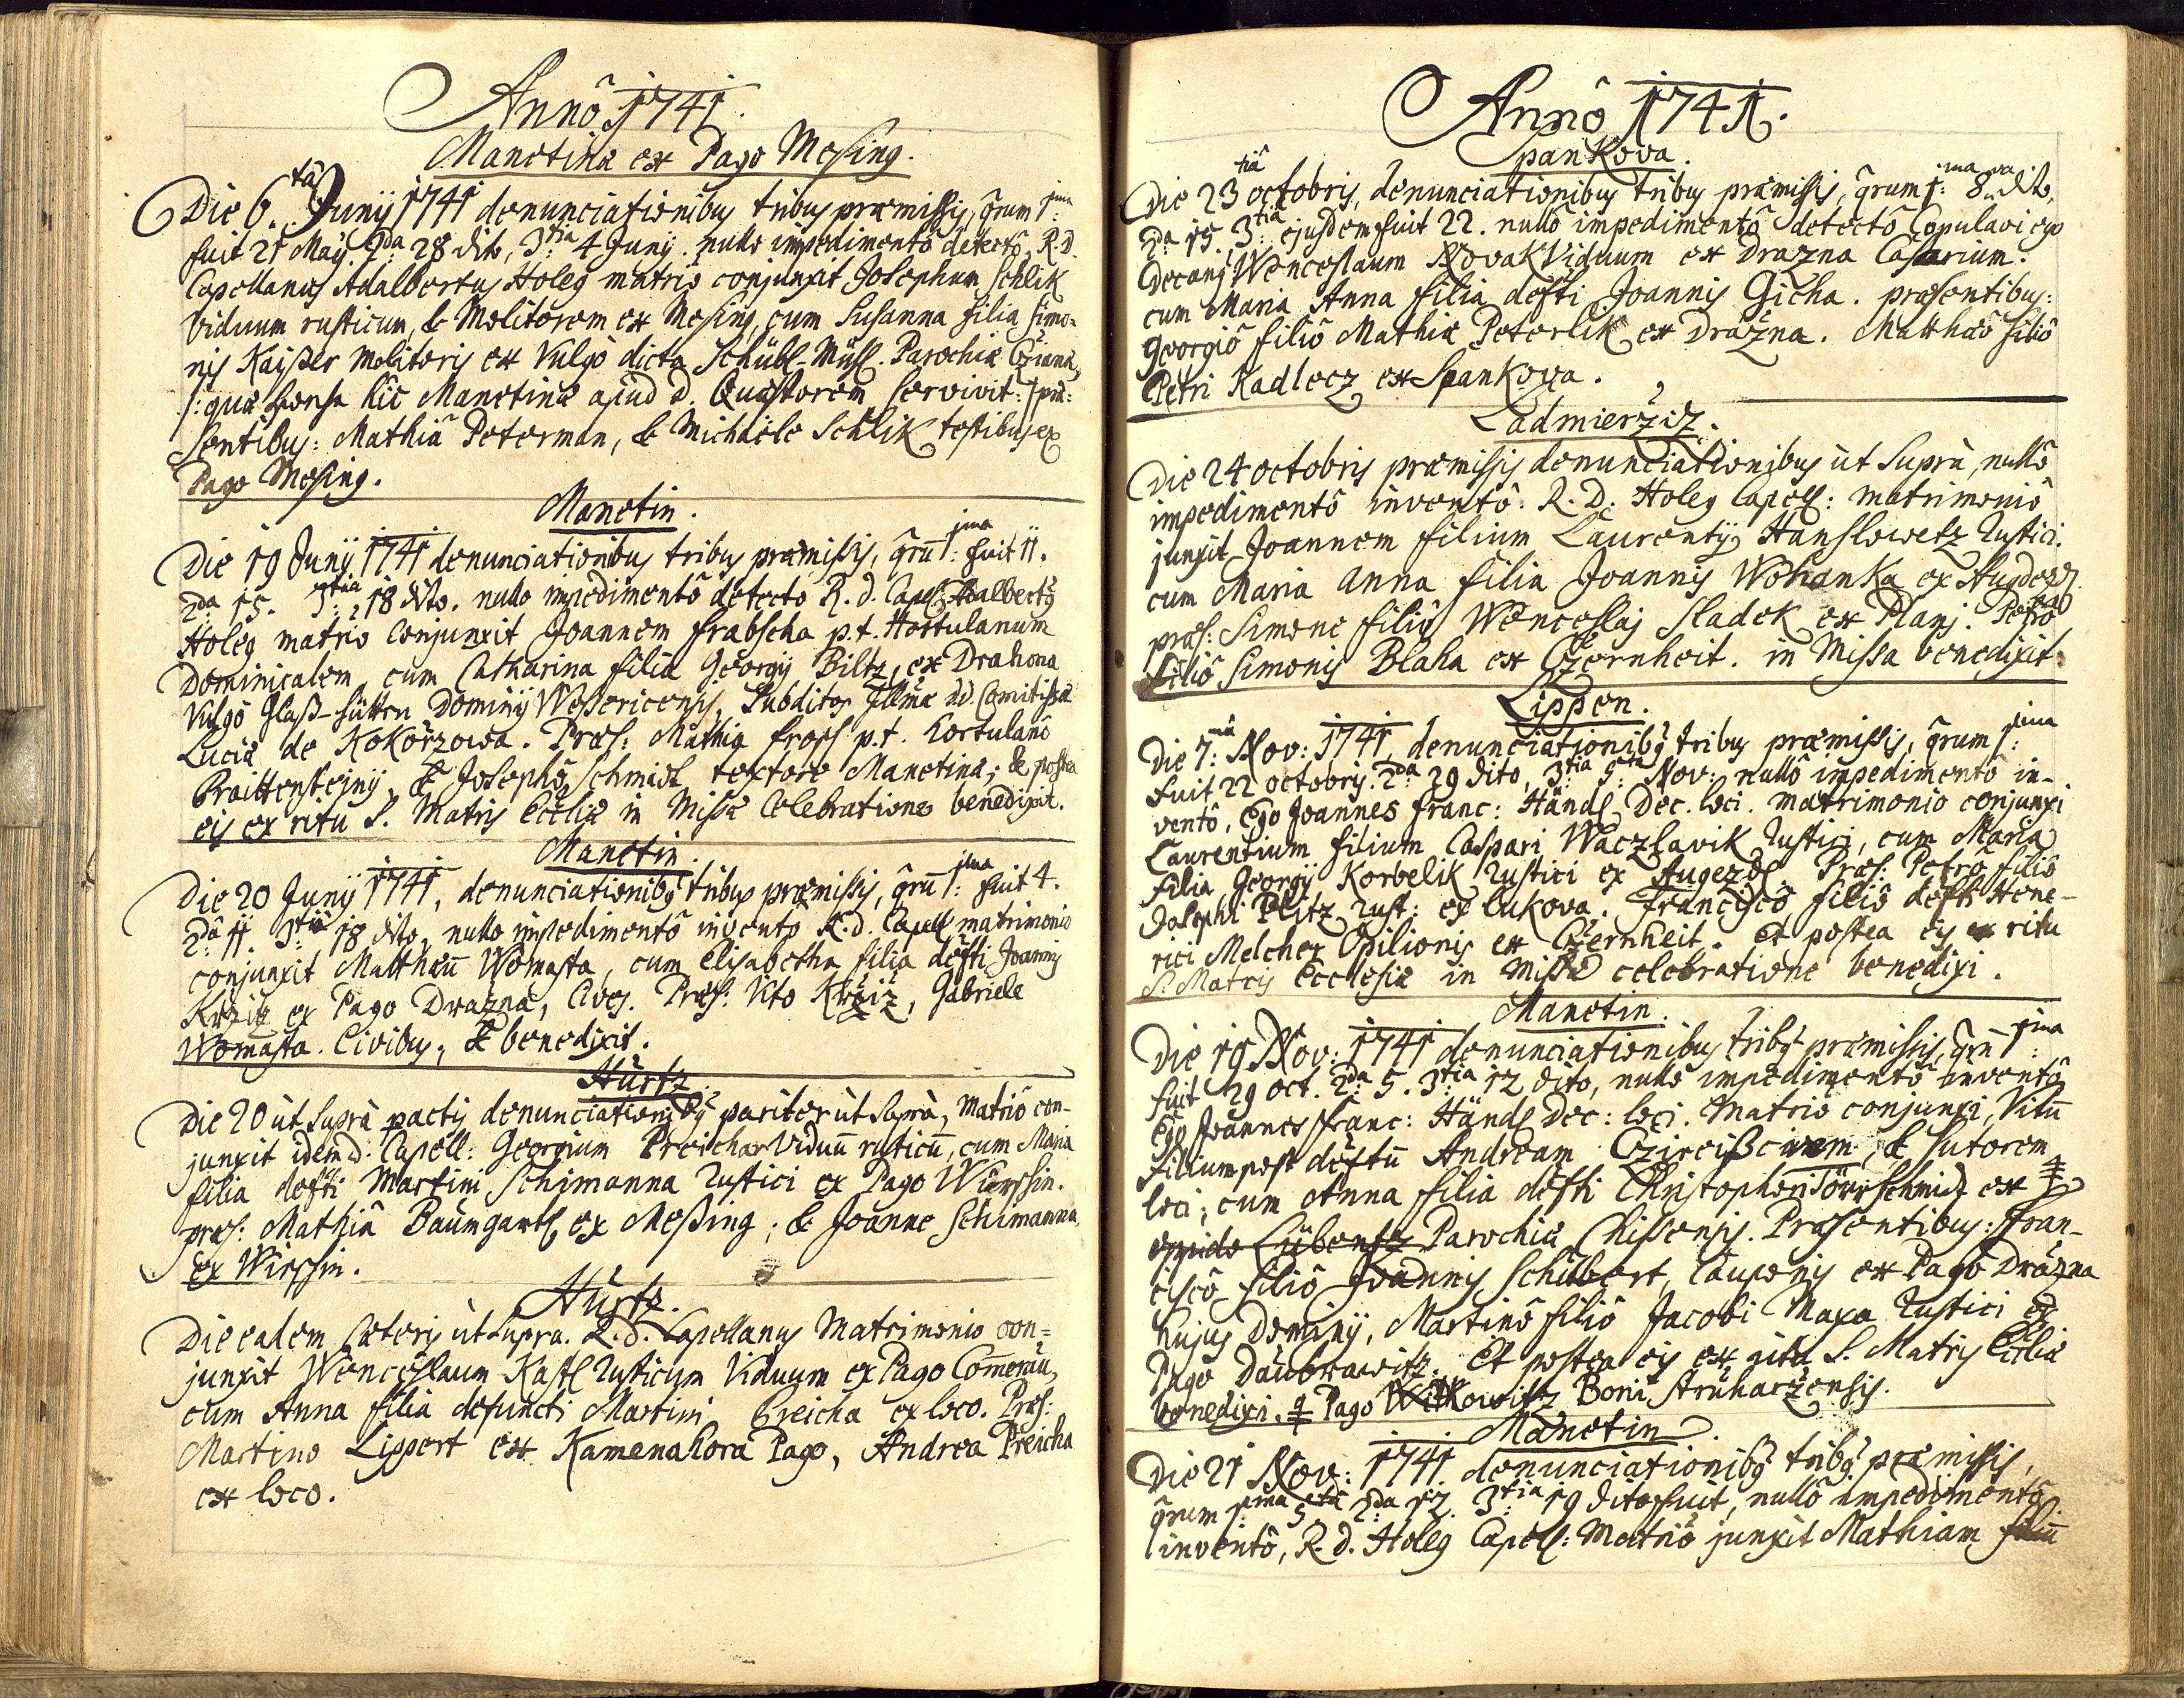 Annô 1741.
Manetina ex Pago Mesing.
Die 6.tâ Junij 1741 denunciationibus tribus præmissis, qrum 1:ma
fuit 21 Maij. 2da 28 dito, 3:tia 4 Junij. nullo impedimentô detectô, R.D.
Capellanus Adalbertus Holeg matrio conjunxit Josephum Schlik
viduum rusticum, & Molitorem ex Mesing, cum Susanna filia Simo=
nis Kaißer Molitoris ex Vulgò dicta Schübl-Mühl. Parochiæ
/: quæ sponsa hîc Manetinæ apud d. Quæstorem servivit :/ præ:
sentibus: Mathiâ Peterman, & Michaële Schlik testibus ex
Pago Mesing.
Manetin.
Die 19 Junij 1741 denunciationibus tribus præmissis, qrũ 1:ma fuit 11.
2da 15. 3:tia 18 dito. nullo impedimentô detecto R.d. Capel. Adalbertus
Holeg matrio conjunxit Joannem Frabscha p.t. Hortulanum
Dominicalem, cum Catharina filia Georgij Biltz, ex Drahona
Vulgò Glaß-hütten Dominij Wesericensis, Subditos Illmæ dd. Comitissæ
Luciæ de Kokorzowa. Præs: Mathia p.t. hortulanô
Praittensteinij, & Josephô Schmidt textore Manetinæ; & postea
eis ex ritu S. Matris Eccliæ in Missæ Celebratione benedixit.
Manetin.
Die 20 Junij 1741, denunciationibus tribus præmissis, qrũ 1:ma fuit 4.
2da 11. 3tiâ 18 dito, nullo impedimentô invento R.d. Capell matrimonio
conjunxit Matthæũ Womasta, cum Elisabetha filia defti Joannis
Krziz ex Pago Drazna, Cives. Præs: Vito Krziz, Gabriele
Womasta. Civibus; & benedixit.
Hürtz.
Die 20 ût suprà pactis denunciationibus pariter ût suprà, Matriô con-
junxit idem d. Capell: Georgium Preicha Viduũ rusticũ, cum Maria
filia defti Martini Schimanna Rustici ex Pago Wierssin.
præs: Mathiâ Baumgartl ex Meßing; & Joanne Schimanna,
ex Wirssin.
Hürtz.
Die eadem Cæteris ût supra. R.d. Capellanus Matrimonio con=
junxit Wenceslaum Kastl Rusticum Viduum ex Pago Comerau,
cum Anna filia defuncti Martini Preicha ex loco. Præs:
Martino Lippert ex Kamenahora Pago, Andrea Preicha
ex loco.
Annô 1741.
Spankova.
Die 23tiâ octobris, denunciationibus tribus præmissis, qrum 1:ma 8va dito,
2da 15. 3:tia ejusdem fuit 22. nullô impedimentô detectô Copulavi ego
Decanus Wenceslaum Novak Viduum ex Drazna Casarium.
cum Maria Anna filia defti Joannis Gicha. præsentibus:
Georgiô filiô Mathiæ Peterlik ex Drazna. Matthæô filiô
Petri Kadlecz ex Spankova.
Ladmierziz.
Die 24 octobris præmissis denunciationibus ût suprà, nullô
impedimentô inventô: R.D: Holeg Capell: matrimoniô
junxit Joannem filium Laurentij Hanslowetz Rustici.
cum Maria Anna filia Joannis Wohanka ex Augezdz.
præs: Simone filiô Wenceslaj Sladek ex Planj. Petrô
filiô Simonis Blaha ex Czernheit. in Missa benedixit.
Lippen.
Die 7:mâ Nov: 1741, denunciationibus tribus præmissis, qrum 1:ma
fuit 22 octobris. 2da 29 dito, 3:tia 5:ta Nov: nullô impedimentô in-
ventô, Ego Joannes Franc: Händl Dec. loci. matrimonio conjunxi
Laurentium filium Caspari Waczlavik Rustici, cum Maria
filia Georgij Korbelik Rustici ex Augezdl. Præs: Petrô filiô
Josephi Plitz Rust: ex Lukova. Franciscô filiô defti Hene-
rici Melcher Opilionis ex Czernheit. et postea eis ex ritu
S. Matris Ecclesiæ in Missæ celebratione benedixi.
Manetin.
Die 19 Nov: 1741 denunciationibus tribus præmissis, qrũ 1:ma
fuit 29 oct. 2da 5. 3:tia 12 dito, nullô impedimentô inventô
Ego Joannes Franc: Händl Dec: loci. Matrio conjunxi, Vitũ
Filium post deftũ Andream Czireiß civem, & Sutorem
loci; cum Anna filia defti Christophori Dörrschmidt ex
oppido Lübentz Parochiæ Chissensis. Præsentibus: Fran-
ciscô filiô Joannis Schubert, Cauponis ex Pagô Drazna
hujus Dominij, Martinô filiô Jacobi Maxa Rustici ex
Pago Daubrawitz. Et postea eis ex ritu S. Matris Eccliæ
benedixi. Pago Witkowitz Boni Struharzensis.
Manetin.
Die 21 Nov: 1741. denunciationibus tribus præmissis,
qrum 1:ma 5ta 2da 12. 3:tia 19 dito fuit, nullô impedimentô
inventô, R.d. Holeg Capell: Matriô junxit Mathiam filiũ